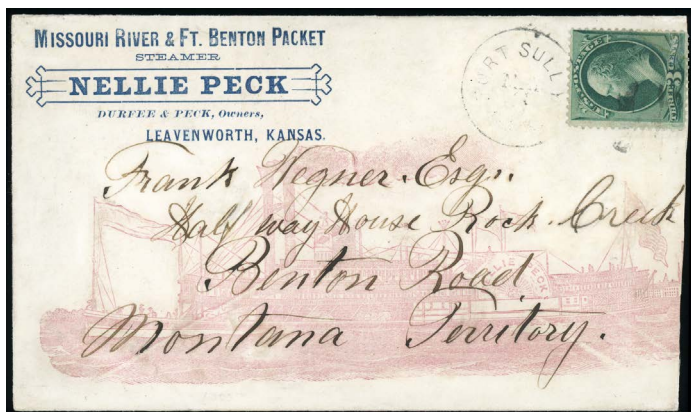 MISSOURI RIVER & FT. BENTON PACKET
STEAMER
NELLIE PECK
DURFEE & PECK, Owners,
LEAVENWORTH, KANSAS.
FORT SULLY
U.S. POSTAGE
3
Frank Wegner. Esqr.
Half way House Rock. Creek
Benton Road
NELLIE PECK
Montana Territory.